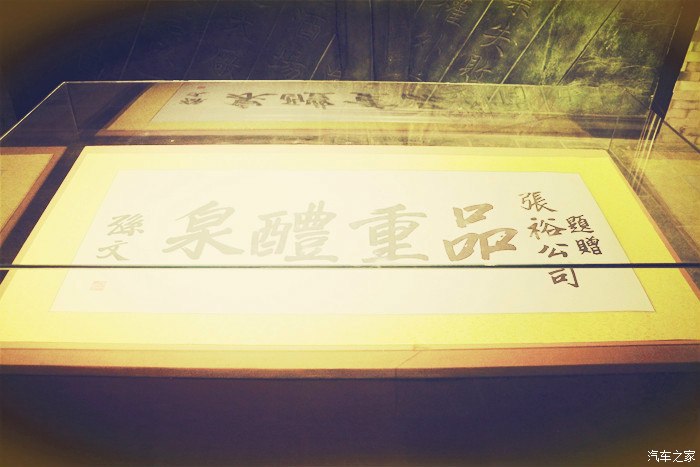 題贈
張裕公司
品重醴泉
孫文
汽车之家